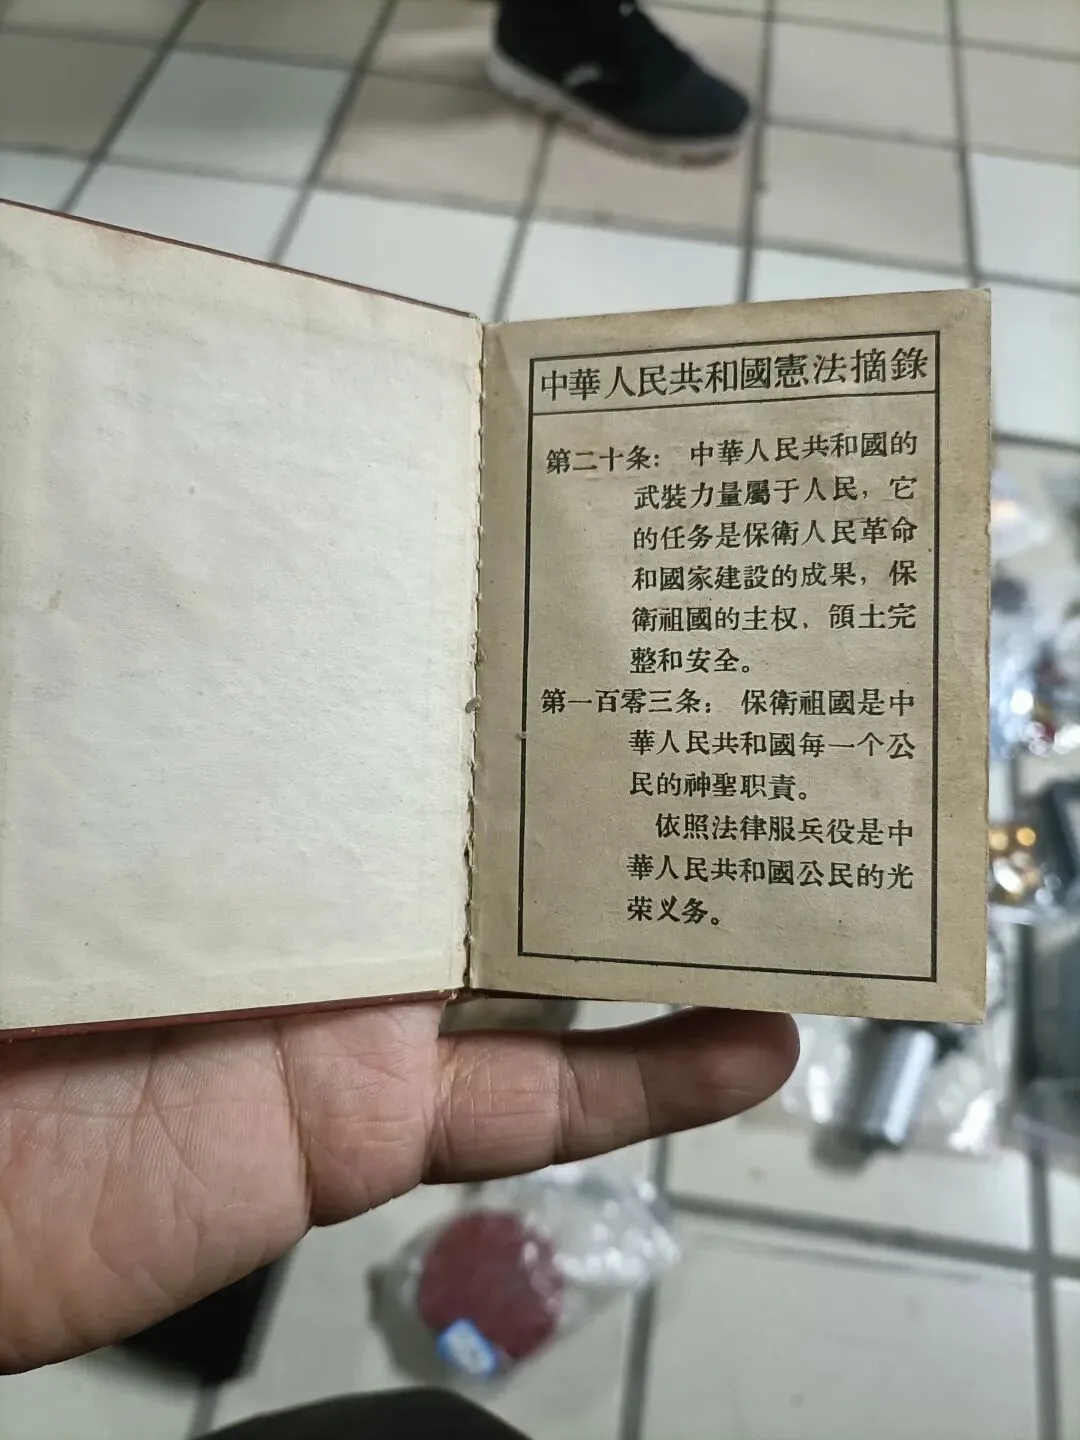 中華人民共和國憲法摘錄
第二十条： 中華人民共和國的
武裝力量屬于人民，它
的任务是保衛人民革命
和國家建設的成果，保
衛祖國的主权、領土完
整和安全。
第一百零三条： 保衛祖國是中
華人民共和國每一个公
民的神聖职責。
依照法律服兵役是中
華人民共和國公民的光
荣义务。